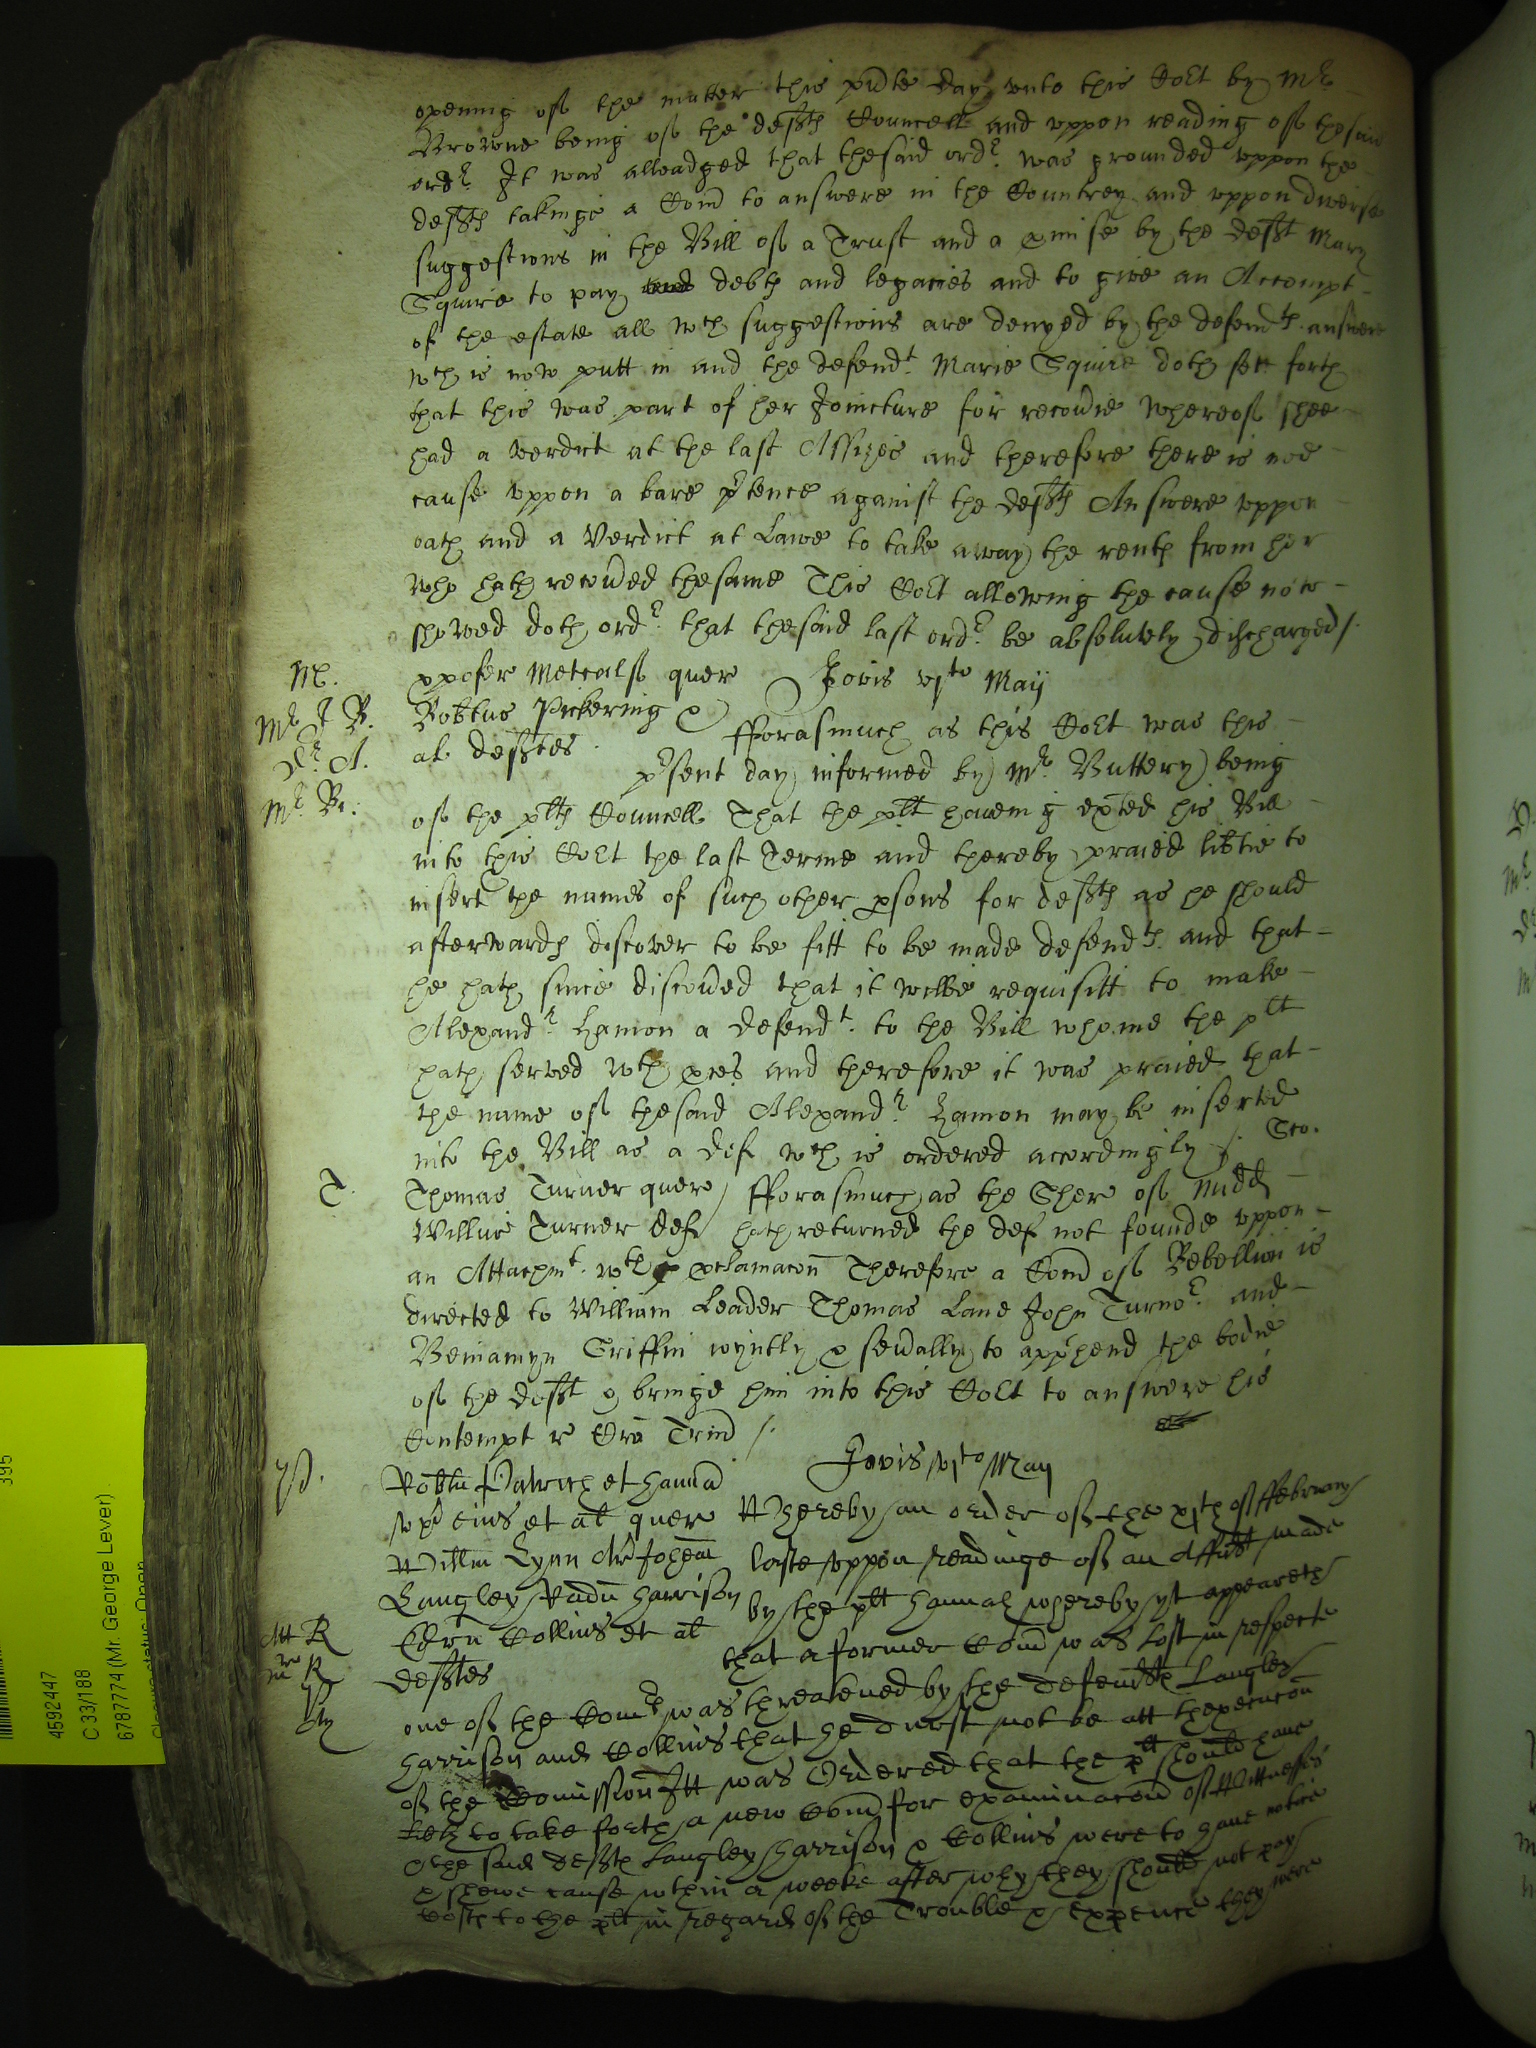 opening of the matter this pñte day vnto this Cort by Mr
Browne being of the defts Councell and vppon reading of thesaid
ordr. It was alleadged that thesaid ordr. was grounded vppon the
defts takinge a Com̃ to answere in the Countrey and vppon diverse
suggestions in the Bill of a Trust and a pmise by the deft Mary
Squire to pay debts and legacies and to give an Accompt
of the estate all wch suggestions are denyed by the defendts answere
wch is now putt in and the defendt. Marie Squire doth sett forth
that this was part of her Joincture for recovie whereof shee
had a verdict at the last Assizes and therefore there is noe
cause vppon a bare ptence against the defts Answere vppon
oath and a Verdict at Lawe to take away the rents from her
who hath recoved thesame This Cort allowing the cause now
shewed doth ordr. that thesaid last ordr. be absolutely discharged /.
M. Metcalf quer Jovis vjto Maij
Mr J B. Robtus Pickering &
Dr. A. al deftes. fforasmuch as this Cort was this
psent day informed by Mr. Buttery being
Mr Br: of the plts Councell That the plt haveing exħited his Bill
into this Cort the last Terme and thereby praied libtie to
insert the names of such other psons for defts as he should
afterwards discover to be fitt to be made defendts. and that
he hath since discoved that it wilbe requisitt to make
Alexandr. Hamon a defendt. to the Bill whome the plt
hath served wth pces and therefore it was praied that
the name of thesaid Alexandr. Hamon may be inserted
into the Bill as a def wch is ordered accordingly /.
T. Thomas Turner quer / fforasmuch as the Sher of Midd
Willus Turner def hath returned the def not founde vppon
an Attachmt. wth pclamacoñ Therefore a Com̃ of Rebellion is
directed to William Leader Thomas Lane John Turnor. and
Beniamyn Griffin ioyntly & sevally to apphend the bodie
of the deft & bringe him into this Cort to answere his
Contempt r Cro Trin /.
Jovis vjto Maij
Robtu Patrich et Hanna
vx eius et al quer Whereby an order of the xjth of ffebruary
Willm Lynn Johem laste vppon readinge of an Affidt made
Langley Radu Harrison by the plt Hannah whereby yt appeareth
Att R Edru Collins et al that a former Com̃ was lost in respecte
deftes
one of the Comrs was threatened by the defendts Langley
Harrison and Collins that he durst not be att thexecucoñ
of the Comission Itt was Ordered that the plt should have
to take forth a new Com̃ for examinacoñ of Wittnesses
& the said defts Langley Harrison & Collins were to have notice
& shewe cause wthin a weeke after why they should not pay
Costs to the plt in regard of the Trouble & expence they were
395
4592447
C 33/188
6787774 (Mr. George Lever)
Closure status: Open